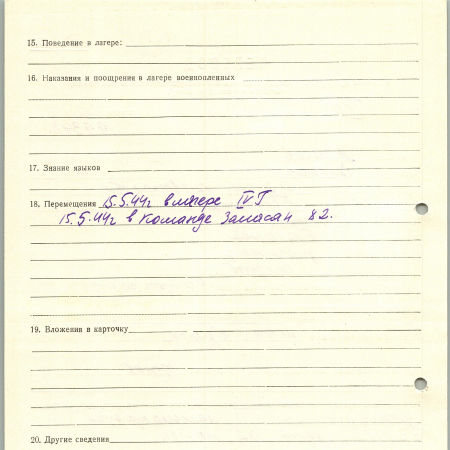 15. Поведение в лагере:
16. Наказания и поощрения в лагере военнопленных
17. Знание языков
18. Перемещения 15.5.44г в лагере IV Г
15.5.44г в команде 82.
19. Вложения в карточку
20. Другие сведения